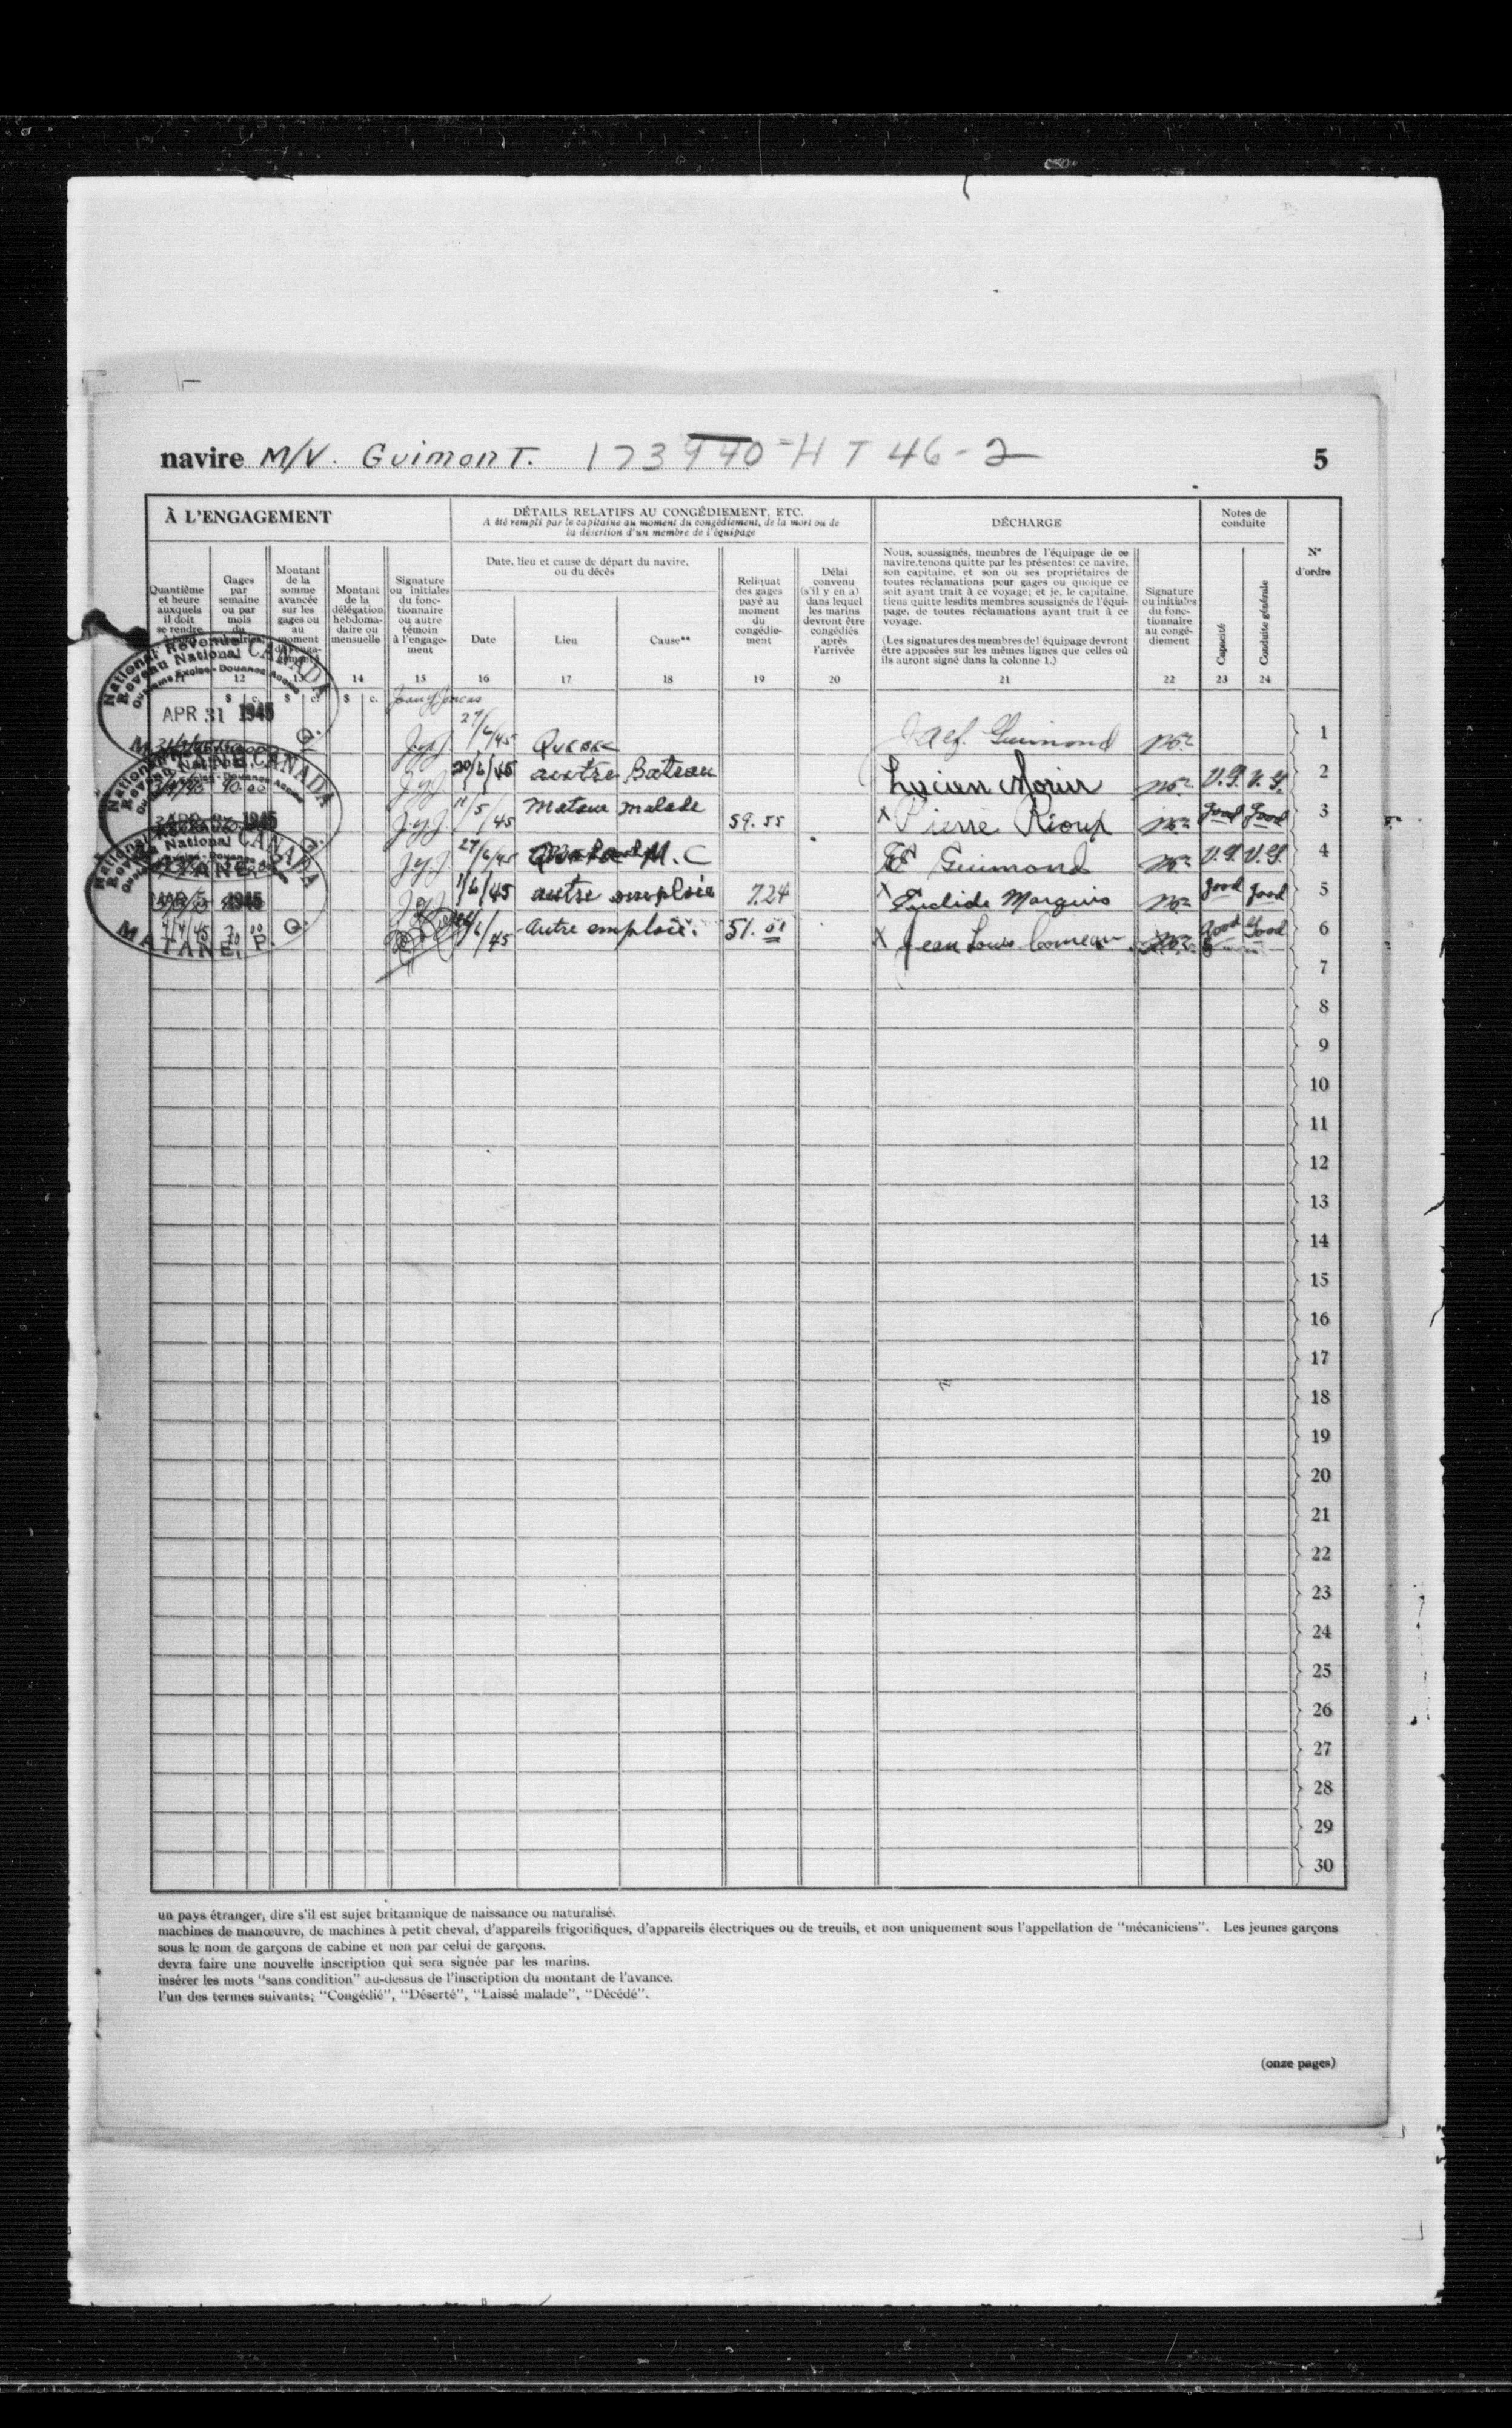 navire M/V. Guimont. 173940-HT 46-2 5
À L'ENGAGEMENT
DÉTAILS RELATIFS AU CONGÉDIEMENT, ETC.
A été rempli par le capitaine au moment du congédiement, de la mort ou de
la désertion d'un membre de l'équipage
DÉCHARGE
Notes de
conduite
N°
d'ordre
Quantième
et heure
auxquels
il doit
se rendre
Gages
par
semaine
ou par
mois
du
Montant
de la
somme
avancée
sur les
gages ou
au
moment
Montant
de la
délégation
hebdoma-
daire ou
mensuelle
Signature
ou initiales
du fonc-
tionnaire
ou autre
témoin
à l'engage-
ment
Date, lieu et cause de départ du navire,
ou du décès
Date
Lieu
Cause**
Reliquat
des gages
payé au
moment
du
congédie-
ment
Délai
convenu
(s'il y en a)
dans lequel
les marins
devront être
congédiés
après
l'arrivée
Nous, soussignés, membres de l'équipage de ce
navire, tenons quitte par les présentes: ce navire,
son capitaine, et son ou ses propriétaires de
toutes réclamations pour gages ou quoique ce
soit ayant trait à ce voyage; et je, le capitaine,
tiens quitte lesdits membres soussignés de l'équi-
page, de toutes réclamations ayant trait à ce
voyage.
(Les signatures des membres de l'équipage devront
être apposées sur les mêmes lignes que celles où
ils auront signé dans la colonne 1.)
Signature
ou initiales
du fonc-
tionnaire
au congé-
diement
Capacité
Conduite générale
12 13 14 15 16 17 18 19 20 21 22 23 24
$ c. $ c. $ c.
National Revenue CANADA
Revenu National
Customs Excise - Douanes Accise
APR 31 1945
CANADA
National
1945
CANADA
National
1945
MATANE, P. Q.
JyJ 27/6/45 Quebec Guimond 1
90.00 JyJ 20/6/45 autre Bateau Lucien Morin V.G. V.G. 2
JyJ 11/5/45 Matane malade 59.55 X Pierre Rioux good good 3
JyJ 27/6/45 M.C Guimond V.G. V.G. 4
JyJ 1/6/45 autre emploie 7.24 X Euclide Marquis good good 5
/6/45 Autre emploie. 51.01 X Jean Louis Comeau good good 6
7
8
9
10
11
12
13
14
15
16
17
18
19
20
21
22
23
24
25
26
27
28
29
30
un pays étranger, dire s'il est sujet britannique de naissance ou naturalisé.
machines de manœuvre, de machines à petit cheval, d'appareils frigorifiques, d'appareils électriques ou de treuils, et non uniquement sous l'appellation de "mécaniciens". Les jeunes garçons
sous le nom de garçons de cabine et non par celui de garçons.
devra faire une nouvelle inscription qui sera signée par les marins.
insérer les mots "sans condition" au-dessus de l'inscription du montant de l'avance.
l'un des termes suivants; "Congédié", "Déserté", "Laissé malade", "Décédé".
(onze pages)